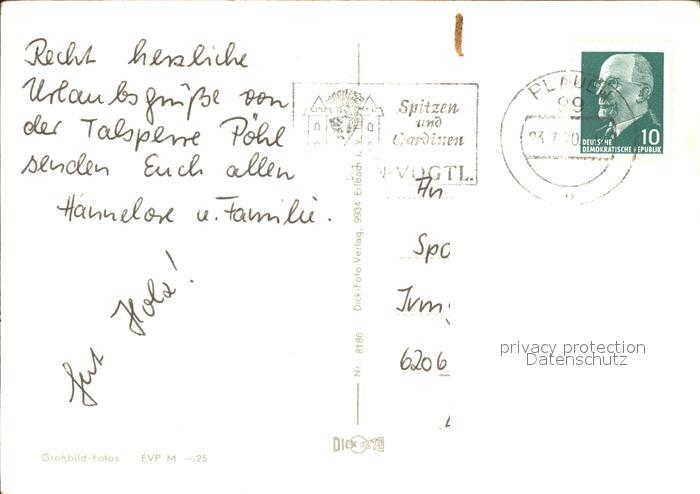 Recht herzliche
Urlaubsgrüße von
der Talsperre Pöhl
senden Euch allen
Hannelore u. Familie.
Gut Holz!
Großbild-Fotos EVP M -.25
Nr. 8186 Dick-Foto-Verlag, 9934 Erlbach i. V.
DICK FOTO
Spitzen
und
Gardinen
N-VOGTL.
PLAUEN
99
23.7.70
DEUTSCHE
DEMOKRATISCHE REPUBLIK
10
An
Spo
6206
privacy protection
Datenschutz